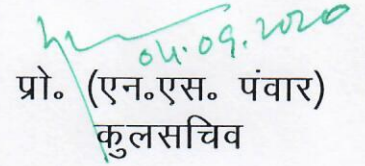 04.09.2020
प्रो० (एन०एस० पंवार)
कुलसचिव